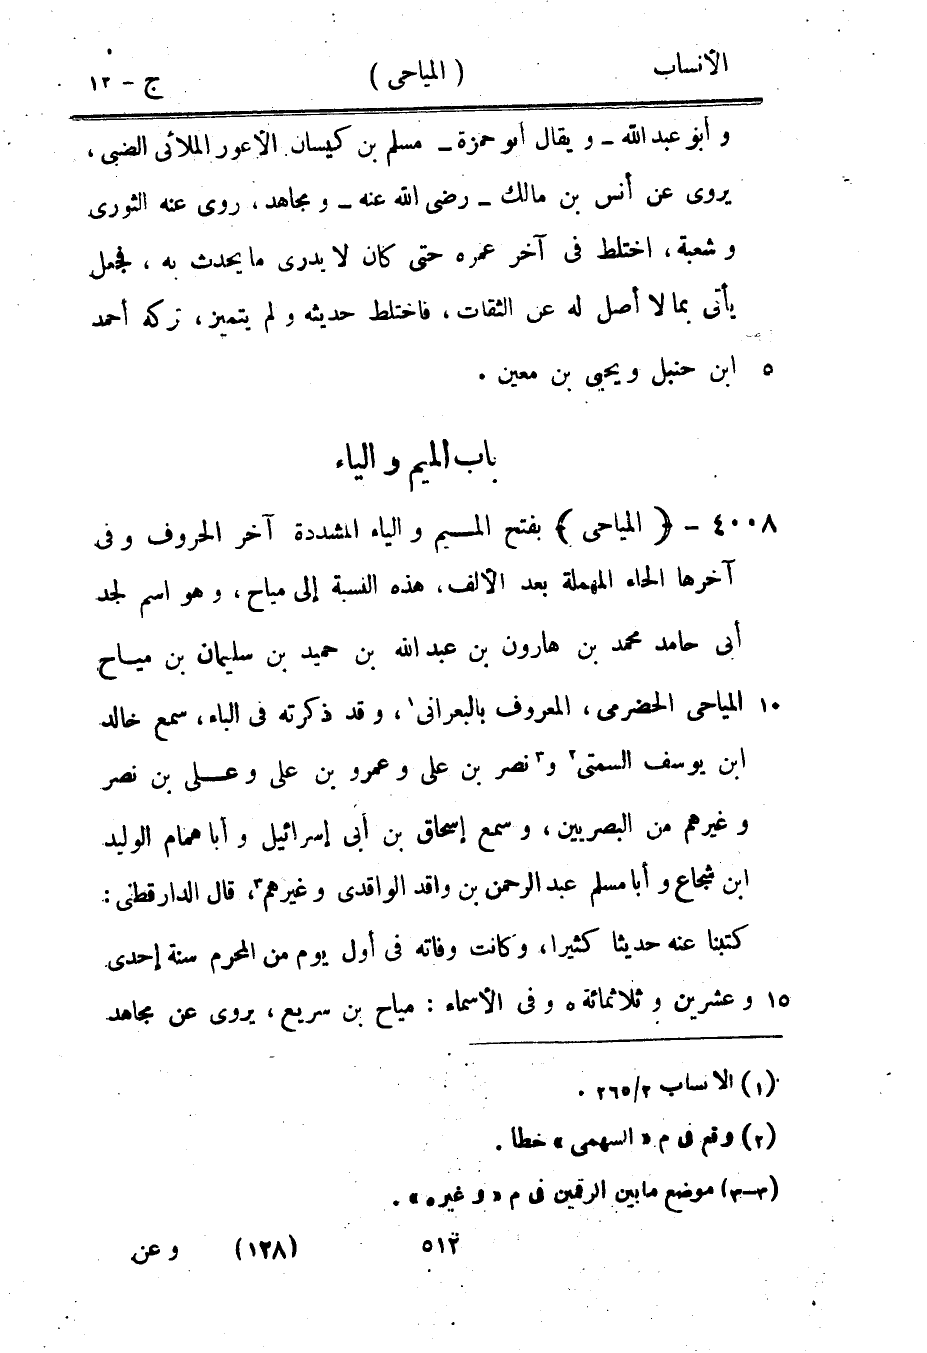 الأنساب ( المياحى ) ج - ١٢
و أبو عبد الله ــ و يقال أبو حمزة ــ مسلم بن كيسان الأعور الملائى الضبى ،
يروى عن أنس بن مالك ــ رضى الله عنه ــ و مجاهد ، روى عنه الثورى
و شعبة ، اختلط فى آخر عمره حتى كان لا يدرى ما يحدث به ، فجعل
يأتى بما لا أصل له عن الثقات ، فاختلط حديثه و لم يتميز ، تركه أحمد
٥ ابن حنبل و يحيى بن معين .
باب الميم و الياء
٤٠٠٨ - ﴿ المياحى ﴾ بفتح المـــيم و الياء المشددة آخر الحروف و فى
آخرها الحاء المهملة بعد الألف ، هذه النسبة إلى مياح ، و هو اسم لجد
أبى حامد محمد بن هارون بن عبد الله بن حميد بن سليمان بن ميـاح
١٠ المياحى الحضرمى ، المعروف بالبعرانى١ ، و قد ذكرته فى الباء ، سمع خالد
ابن يوسف السمتى٢ و٣ نصر بن على و عمرو بن على و عـلى بن نصر
و غيرهم من البصريين ، و سمع إسحاق بن أبى إسرائيل و أبا همام الوليد
ابن شجاع و أبا مسلم عبد الرحمن بن واقد الواقدى و غيرهم٣ ، قال الدارقطنى :
كتبنا عنه حديثا كثيرا ، و كانت وفاته فى أول يوم من المحرم سنة إحدى
١٥ و عشرين و ثلاثمائة ه و فى الأسماء : مياح بن سريع ، يروى عن مجاهد
(١) الانساب ٢/٢٦٥ .
(٢) وقع فى م « السهمى » خطا .
(٣-٣) موضع ما بين الرقمين فى م « و غيره » .
٥١٢ (١٢٨) و عن